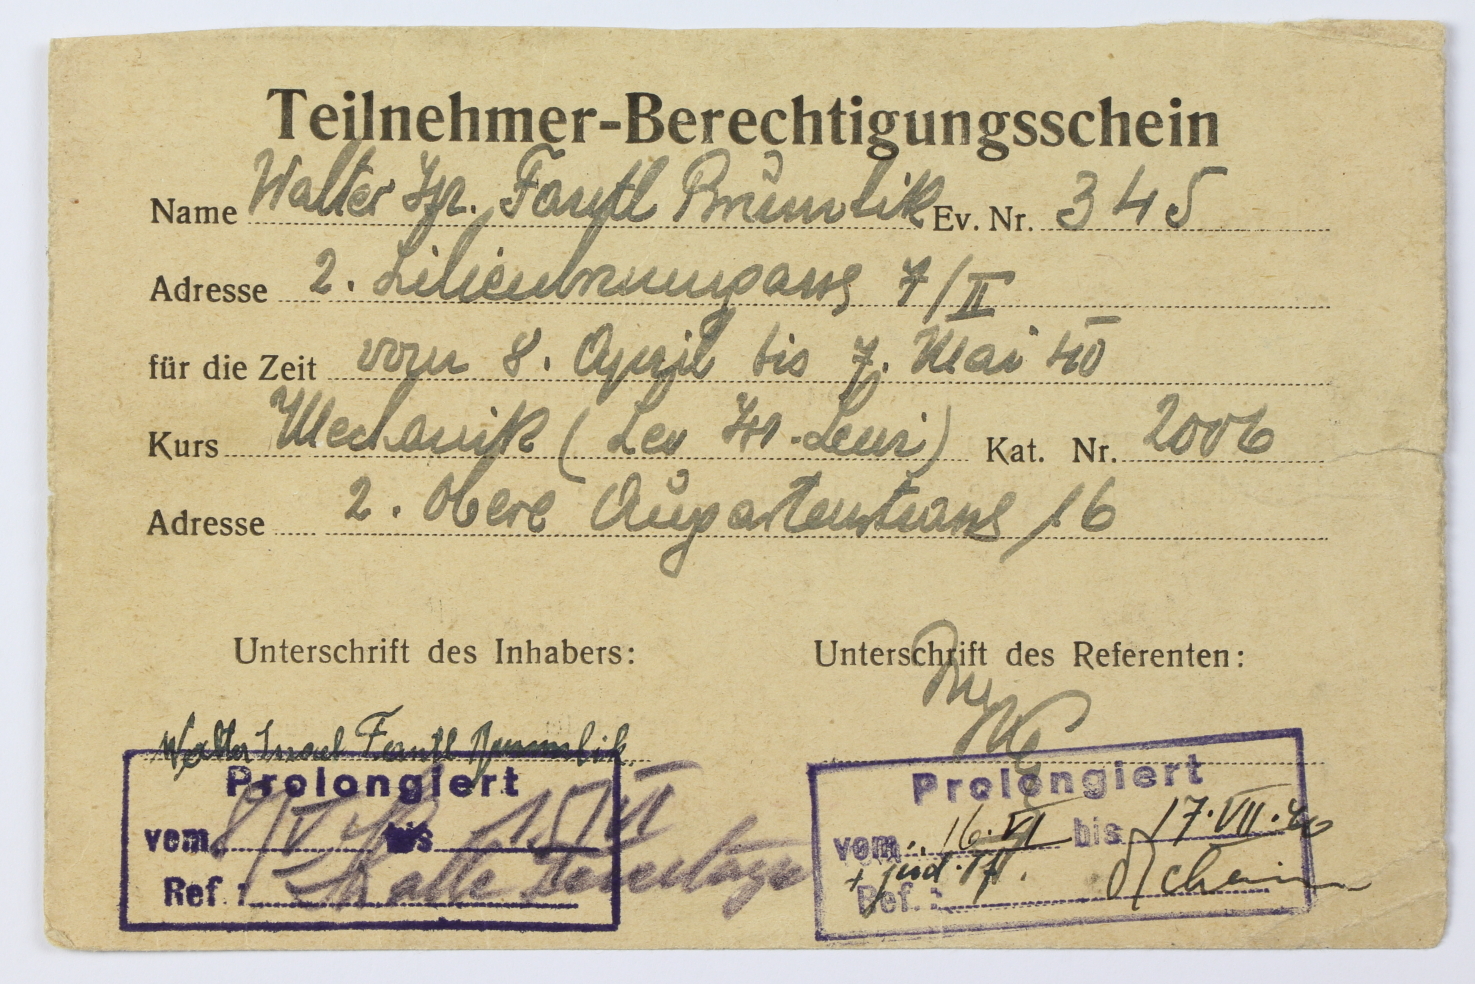 Teilnehmer-Berechtigungsschein
Name Walter Isr. Fantl Brumlik Ev. Nr. 345
Adresse 2. Lilienbrunngasse 7/II
für die Zeit vom 8. April bis 7. Mai 40
Kurs Mechanik (Leo Isr. ) Kat. Nr. 2006
Adresse 2. Obere Augartenstrasse 16
Unterschrift des Inhabers: Unterschrift des Referenten:
Walter Israel Fantl Brumlik
Prolongiert
vom 8/V bis 15/VI
Ref.: alle Feiertage
Prolongiert
vom 16.VI bis 17.VII.40
+ jüd.
Ref.: